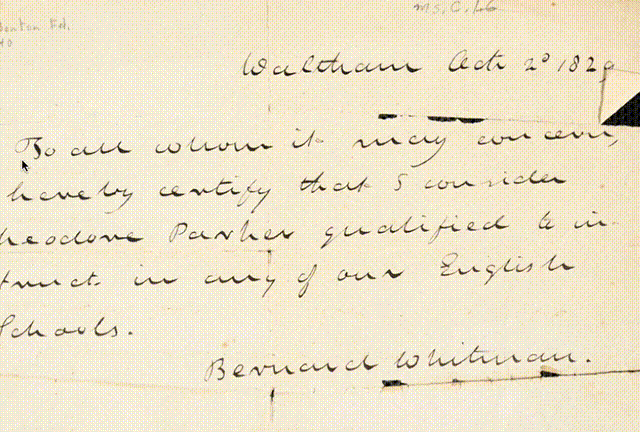 Denton Fd.
Ms. C. 1.6
Waltham Oct. 2d 1829
To all whom it may concern,
hereby certify that I consider
heodore Parker qualified to in-
truct in any of our English
Schools.
Bernard Whitman.